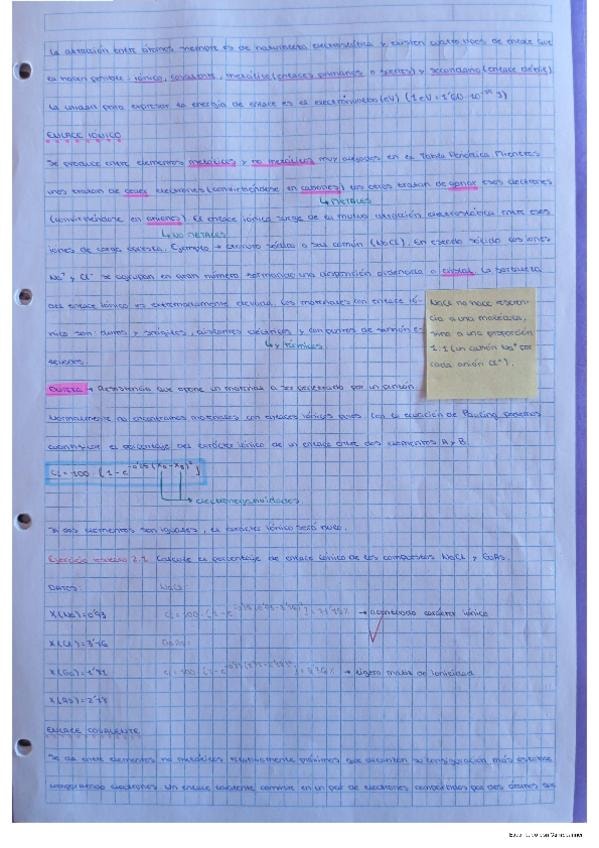 La atracción entre átomos siempre es de naturaleza electrostática y existen cuatro tipos de enlace que
la hacen posible: iónico, covalente, metálico (enlaces primarios o fuertes) y secundario (enlace débil).
La unidad para expresar la energía de enlace es el electrónvoltio (eV) (1 eV = 1'60·10⁻¹⁹ J)
ENLACE IÓNICO
Se produce entre elementos metálicos y no metálicos muy alejados en la Tabla Periódica. Mientras
unos tratan de ceder electrones (convirtiéndose en cationes) los otros tratan de ganar esos electrones
↳ METALES
(convirtiéndose en aniones). El enlace iónico surge de la mutua atracción electrostática entre esos
↳ NO METALES
iones de carga opuesta. Ejemplo → cloruro sódico o sal común (NaCl). En estado sólido los iones
Na⁺ y Cl⁻ se agrupan en gran número formando una disposición ordenada o cristal. La fortaleza
del enlace iónico es extremadamente elevada. Los materiales con enlace ió-
nico son: duros y frágiles, aislantes eléctricos y con puntos de fusión e-
↳ y térmicos
levados.
NaCl no hace referen-
cia a una molécula,
sino a una proporción
1:1 (un catión Na⁺ por
cada anión Cl⁻).
DUREZA → Resistencia que opone un material a ser penetrado por un punzón.
Normalmente no encontramos materiales con enlaces iónicos puros. Con la ecuación de Pauling podemos
cuantificar el porcentaje del carácter iónico de un enlace entre dos elementos A y B.
Ci = 100 · [1 - e^-0'25 (XA - XB)²]
→ electronegatividades
Si dos elementos son iguales, el carácter iónico será nulo.
Ejercicio resuelto 2.1 Calcule el porcentaje de enlace iónico de los compuestos NaCl y GaAs.
DATOS: NaCl:
X(Na)=0'93 → acentuado carácter iónico
X(Cl)=3'16 GaAs:
X(Ga)=1'81 → ligero matiz de ionicidad
X(As)=2'18
ENLACE COVALENTE
Se da entre elementos no metálicos relativamente próximos que alcanzan su configuración más estable
compartiendo electrones. Un enlace covalente consiste en un par de electrones compartidos por dos átomos de